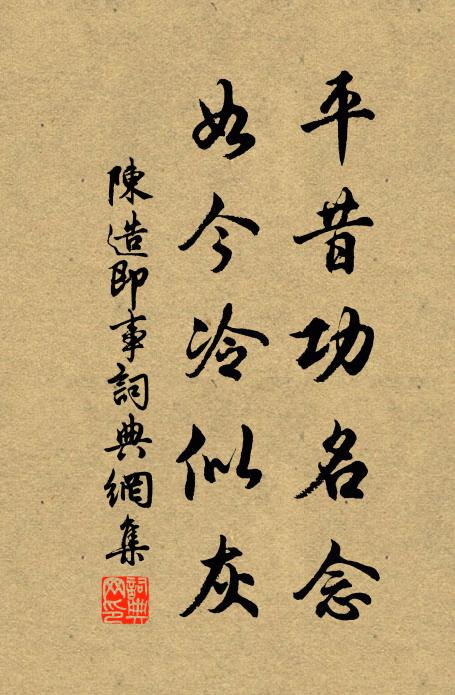 平昔功名念
如今冷似灰
陳造即事詞典網集
詞典網印